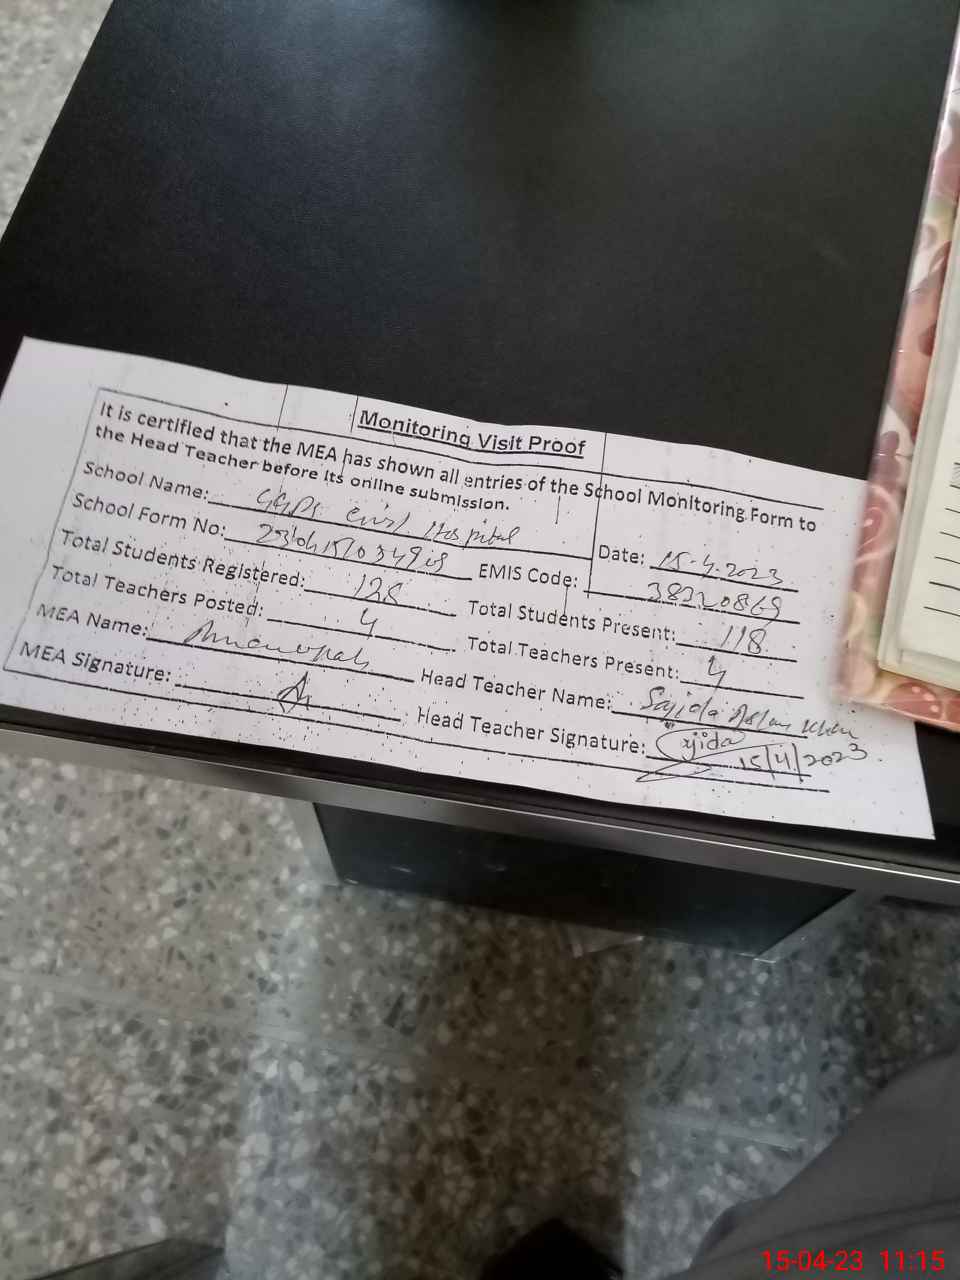 Monitoring Visit Proof
It is certified that the MEA has shown all entries of the School Monitoring Form to
the Head Teacher before its online submission.
School Name: GGPS Civil Hospital Date: 15-4-2023
School Form No: EMIS Code: 38320869
Total Students Registered: 128 Total Students Present: 118
Total Teachers Posted: 4 Total Teachers Present: 4
MEA Name: Head Teacher Name: Sajida Aslam Khan
MEA Signature: Head Teacher Signature: Sajida
15/4/2023
15-04-23 11:15